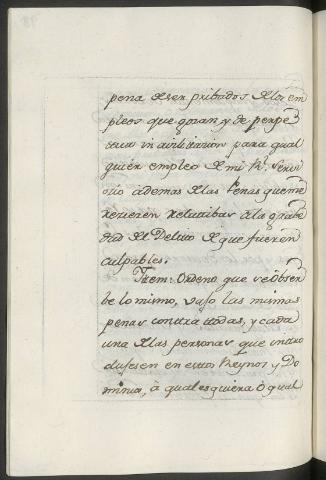 pena de ser pribados de los em
pleos que gozan, y de perpe
tua in avilitacion para qual
quier empleo de mi Rl. Servi
cio ademas de las Penas que me
recieren relatibas a la grabe
dad del Delito de que fueren
culpables.
Item: Ordeno que se Obser
be lo mismo, vajo las mismas
penas contra todas, y cada
una de las personas que intro
dujesen en estos Reynos y Do
minios, à qualesquiera ò qual